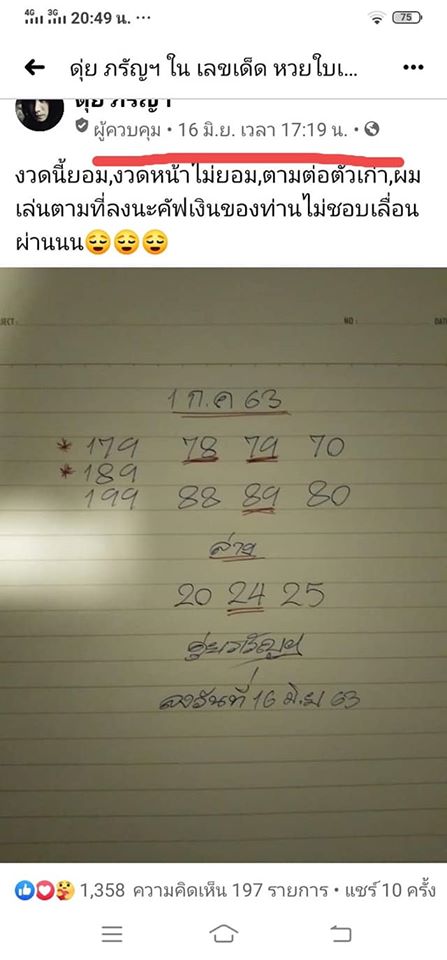 4G 3G 20:49 น. ...
75
ดุ่ย ภรัญฯ ใน เลขเด็ด หวยใบเ... 
ดุ่ย ภรัญฯ
ผู้ควบคุม • 16 มิ.ย. เวลา 17:19 น. •
งวดนี้ยอม,งวดหน้าไม่ยอม,ตามต่อตัวเก่า,ผม
เล่นตามที่ลงนะคัฟเงินของท่านไม่ชอบเลื่อน
ผ่านนน😌😌😌
JECT: NO: DAT
1 ก.ค 63
* 179 78 79 70
* 189
199 88 89 80
ล่าง
20 24 25
ดุ่ยภรัญฯ
ลงวันที่ 16 มิ.ย 63
1,358 ความคิดเห็น 197 รายการ • แชร์ 10 ครั้ง